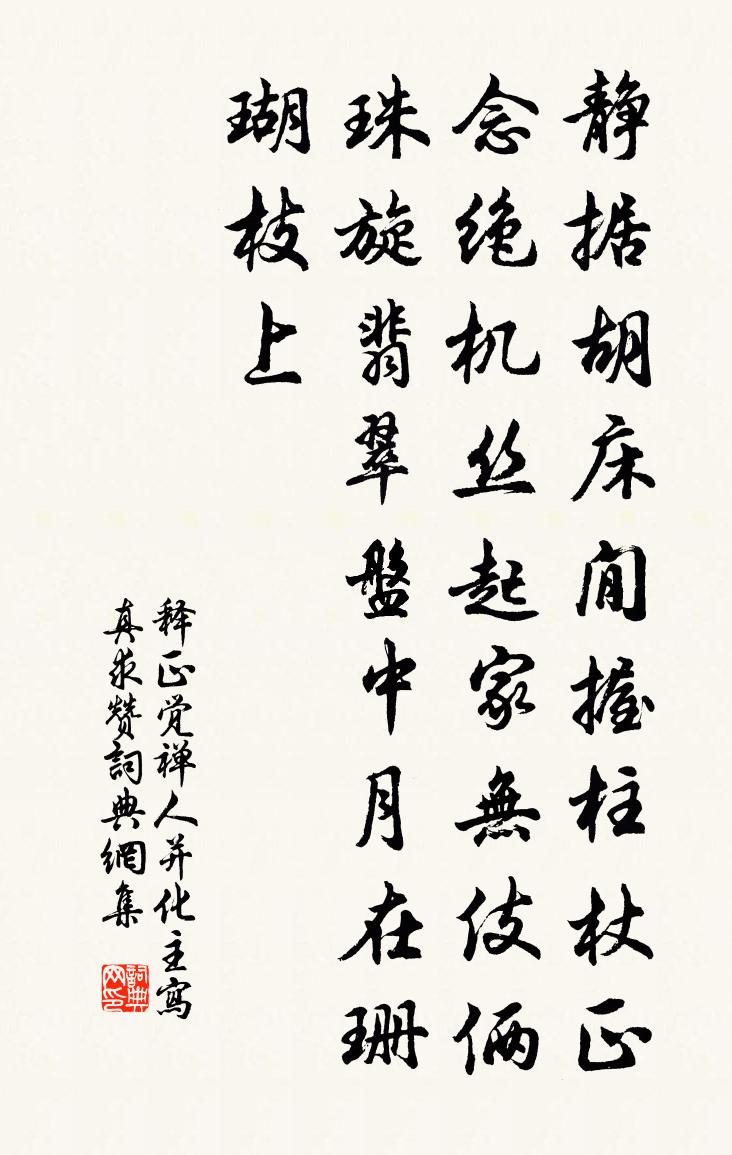 静据胡床闲握柱杖正
念绝机丝起家無伎俩
珠旋翡翠盤中月在珊
瑚枝上
释正觉禅人并化主寫
真求赞詞典網集
詞典网印